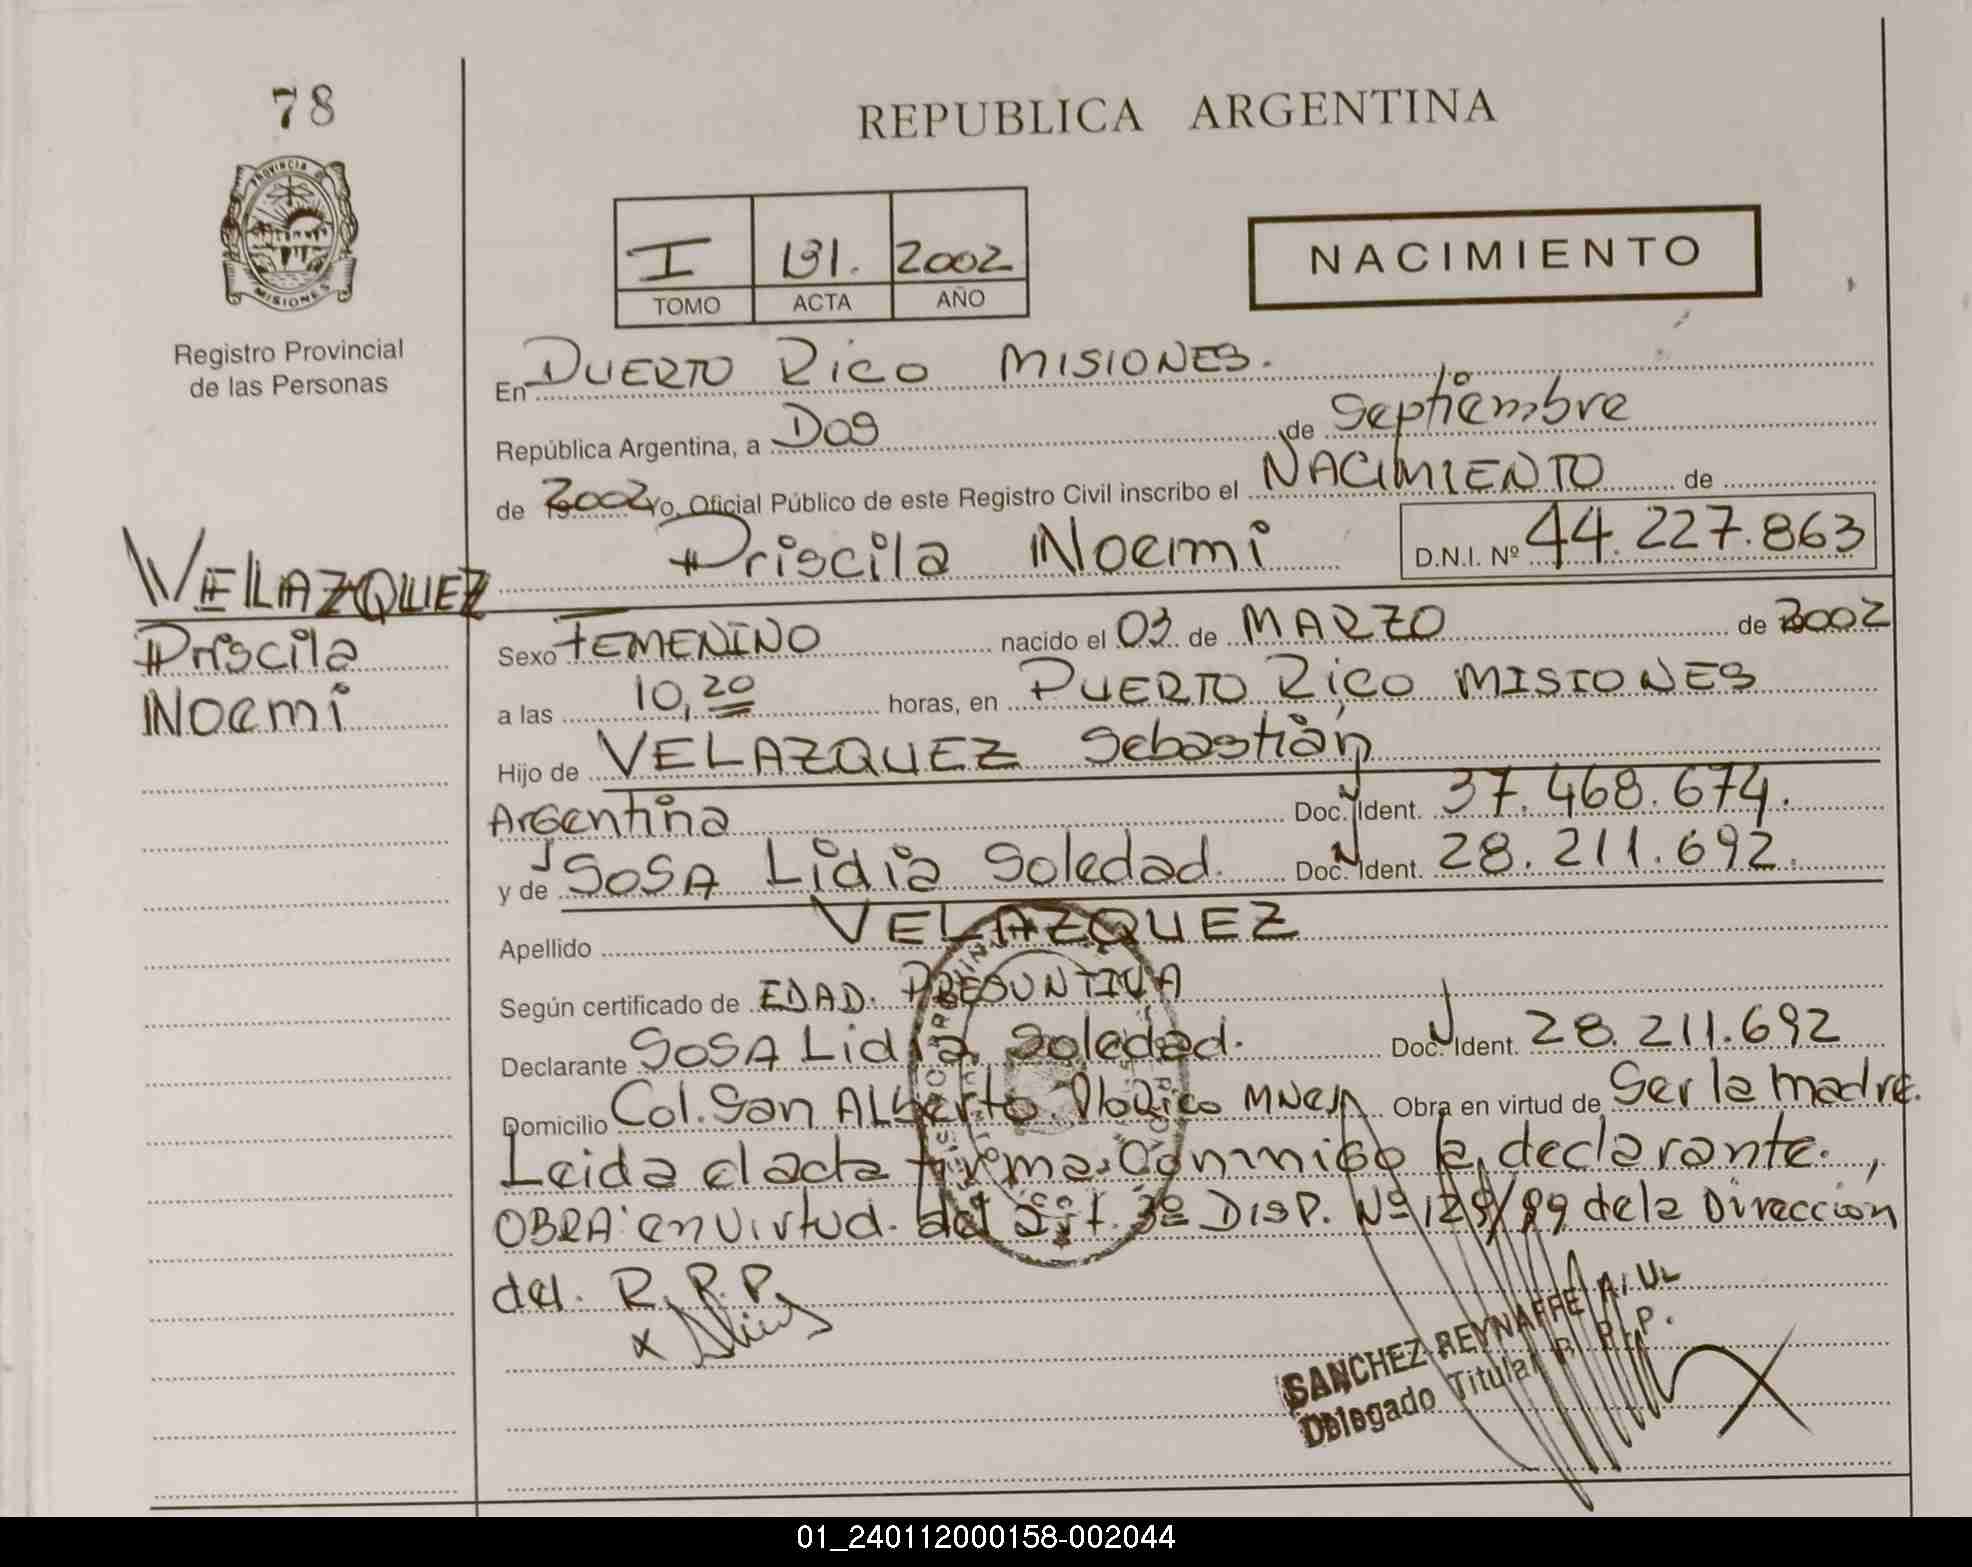 78
REPUBLICA ARGENTINA
PROVINCIA D
MISIONES
Registro Provincial
de las Personas
I 131. 2002
TOMO ACTA AÑO
NACIMIENTO
En PUERTO Rico MISIONES.
República Argentina, a Dos de Septiembre
de 2002 Yo, Oficial Público de este Registro Civil inscribo el NACIMIENTO de
Priscila Noemi D.N.I. Nº 44.227.863
VELAZQUEZ
Priscila
Noemi
Sexo FEMENINO nacido el 03 de MARZO de 2002
a las 10,20 horas, en PUERTO Rico MISIONES
Hijo de VELAZQUEZ Sebastián
Argentina Doc. Ident. 37.468.674.
y de SOSA Lidia Soledad. Doc. Ident. 28.211.692.
Apellido VELAZQUEZ
Según certificado de EDAD. PRESUNTIVA
Declarante SOSA Lidia Soledad. Doc. Ident. 28.211.692
Domicilio Col. San ALberto Pto Rico MNes Obra en virtud de Ser la madre.
Leida el acta firma Conmigo la declarante.,
OBRA en virtud. del art. 3º DISP. Nº 129/89 de la Dirección
del. R.P.P.
x
SANCHEZ REYNAFFE
Delegado Titular R. P. P.
01_240112000158-002044